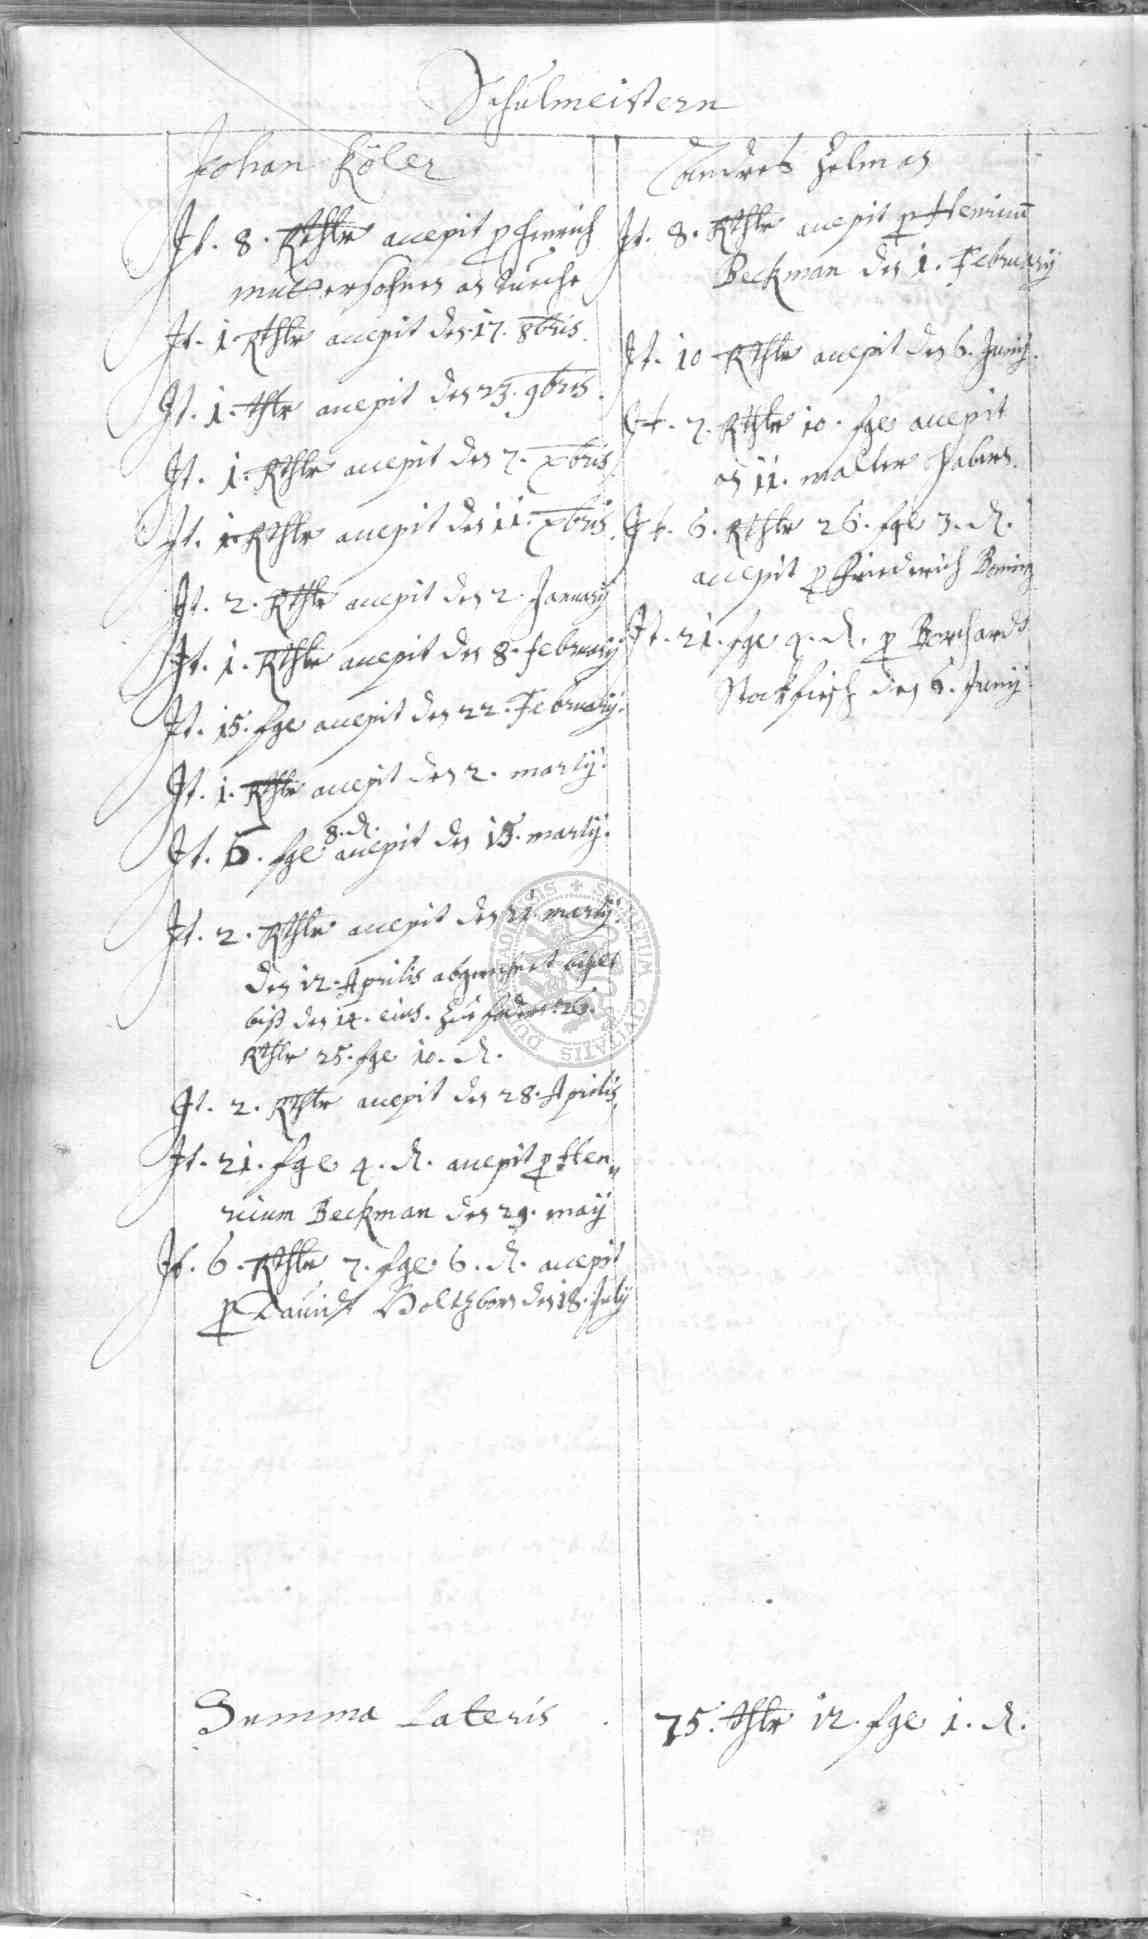 Schulmeistern
Johan Köler
It. 8. Rthlr accepit p Hinrich
muttersohnen an tuche
It. 1 Rthlr accepit den 17. 8bris.
It. 1. thlr accepit den 23. 9bris.
It. 1. Rthlr accepit den 7. Xbris
It. 1 Rthlr accepit den 11. Xbris.
It. 2. Rthlr accepit den 2. January
It. 1. Rthlr accepit den 8. february
It. 15. fgl accepit den 22. February.
It. 1. Rthlr accepit den 2. marty.
8. d.
It. 6. fgl accepit den 15. marty.
It. 2. Rthlr accepit den 21. marty.
den 12. Aprilis abgerechnet
biß den 14. eius.
Rthlr 25. fgl 10. d.
It. 2. Rthlr accepit den 28. Aprilis
It. 21. fgl 4. d. accepit p Hen„
ricum Beckman den 29. may
It. 6. Rthlr 7. fgl 6. d. accepit
p Dauidt Holtzborn den 18. July
Andres Helman
It. 8. Rthlr accepit p Henricum
Beckman den 1. February
It. 10 Rthlr accepit den 6. Juny.
It. 7. Rthlr 10. fgl accepit
an 11. malter habern.
It. 6. Rthlr 26. fgl 3. d.
accepit p Friederich
It. 21. fgl 4. d. p Borchardt
Stockfisch den 6. Juny.
Summa Lateris . 75. thlr 12. fgl 1. d.
SECRETUM CIVITATIS